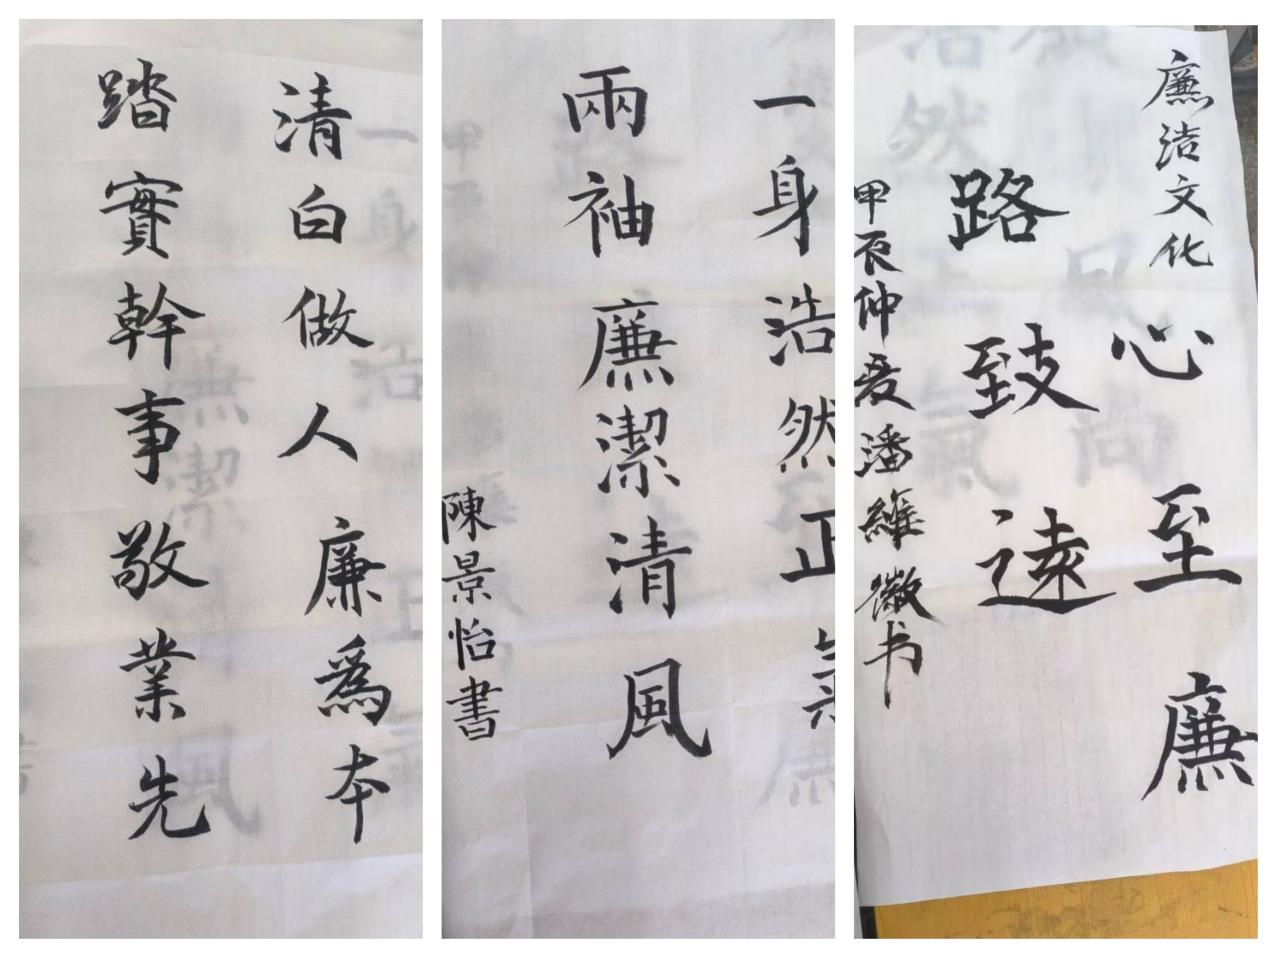 清白做人廉為本
踏實幹事敬業先
一身浩然正氣
兩袖廉潔清風
陳景怡書
廉洁文化
心至廉
路致遠
甲辰仲夏潘維微书